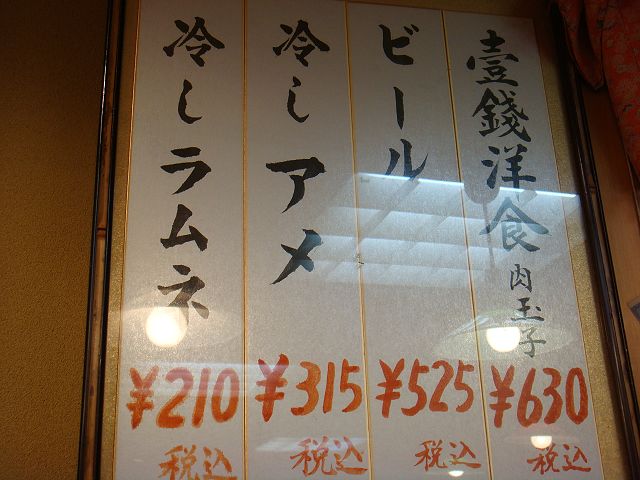 壹錢洋食 肉玉子
¥630
税込
ビール
¥525
税込
冷しアメ
¥315
税込
冷しラムネ
¥210
税込